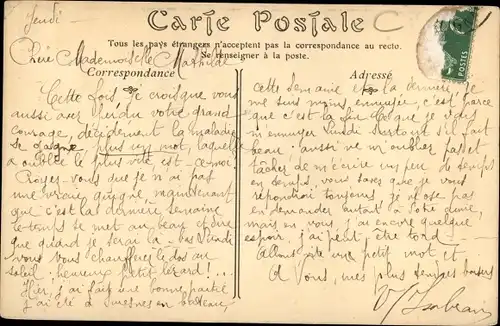 Jeudi
Carte Postale
Tous les pays étrangers n'acceptent pas la correspondance au recto.
Se renseigner à la poste.
Chère Mademoiselle Mathilde
Correspondance
Cette fois je crois que vous
aussi avez perdu votre grand
courage, décidément la maladie
se gagne, plus un mot, laquelle
a oublié le plus vite est-ce moi
Croyez-vous que je n'ai pas
une vraie guigne, maintenant
que c'est la dernière semaine
le temps se met au beau et dire
que quand je serai là-bas Lundi
vous vous chaufferez le dos au
soleil: heureux petit lézard!...
Hier, j'ai fait une bonne partie
j'ai été à Suresnes en bateau,
Adressé
cette semaine est la dernière, je
me suis moins ennuyée, c'est parce
que c'est la fin. Ce que je vais
m'ennuyer Lundi surtout s'il fait
beau: aussi ne m'oubliez pas et
tâcher de m'écrire un peu de temps
en temps, vous savez que je vous
répondrai toujours, je n'ose pas
en demander autant à votre amie,
mais en vous, j'ai encore quelque
espoir, j'ai peut être tord
Allons vite une petit mot et
à vous, mes plus tendres baisers
POSTES